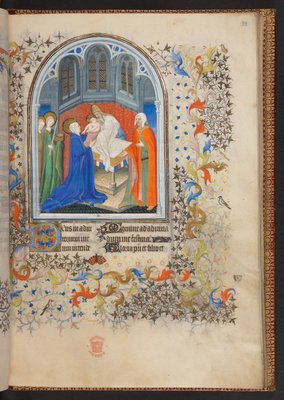 Deus in adiu
torium me
um intende
Domine ad adiuva
dum me festina
Gloria patri et filio et